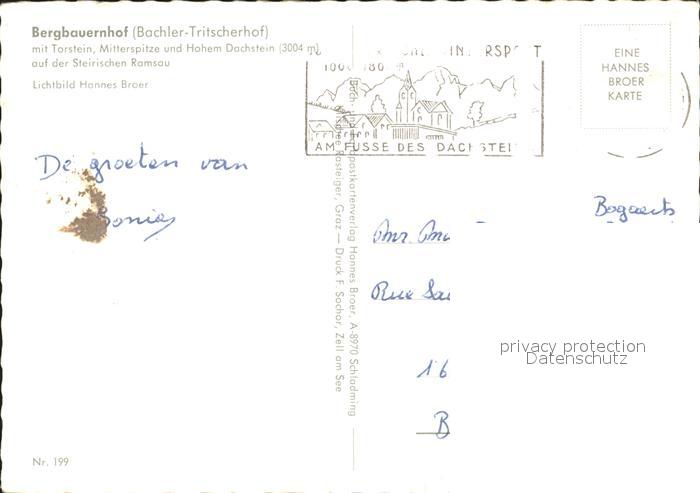 Bergbauernhof (Bachler-Tritscherhof)
mit Torstein, Mitterspitze und Hohem Dachstein (3004 m)
auf der Steirischen Ramsau
Lichtbild Hannes Broer
EINE
HANNES
BROER
KARTE
AM FUSSE DES DACHSTEI
De groeten van
Sonia
Postkartenverlag Hannes Broer, A-8970 Schladming
Rasteiger, Graz — Druck F. Sochor, Zell am See
Bogaerts
Mr.
Rue
16
B
privacy protection
Datenschutz
Nr. 199